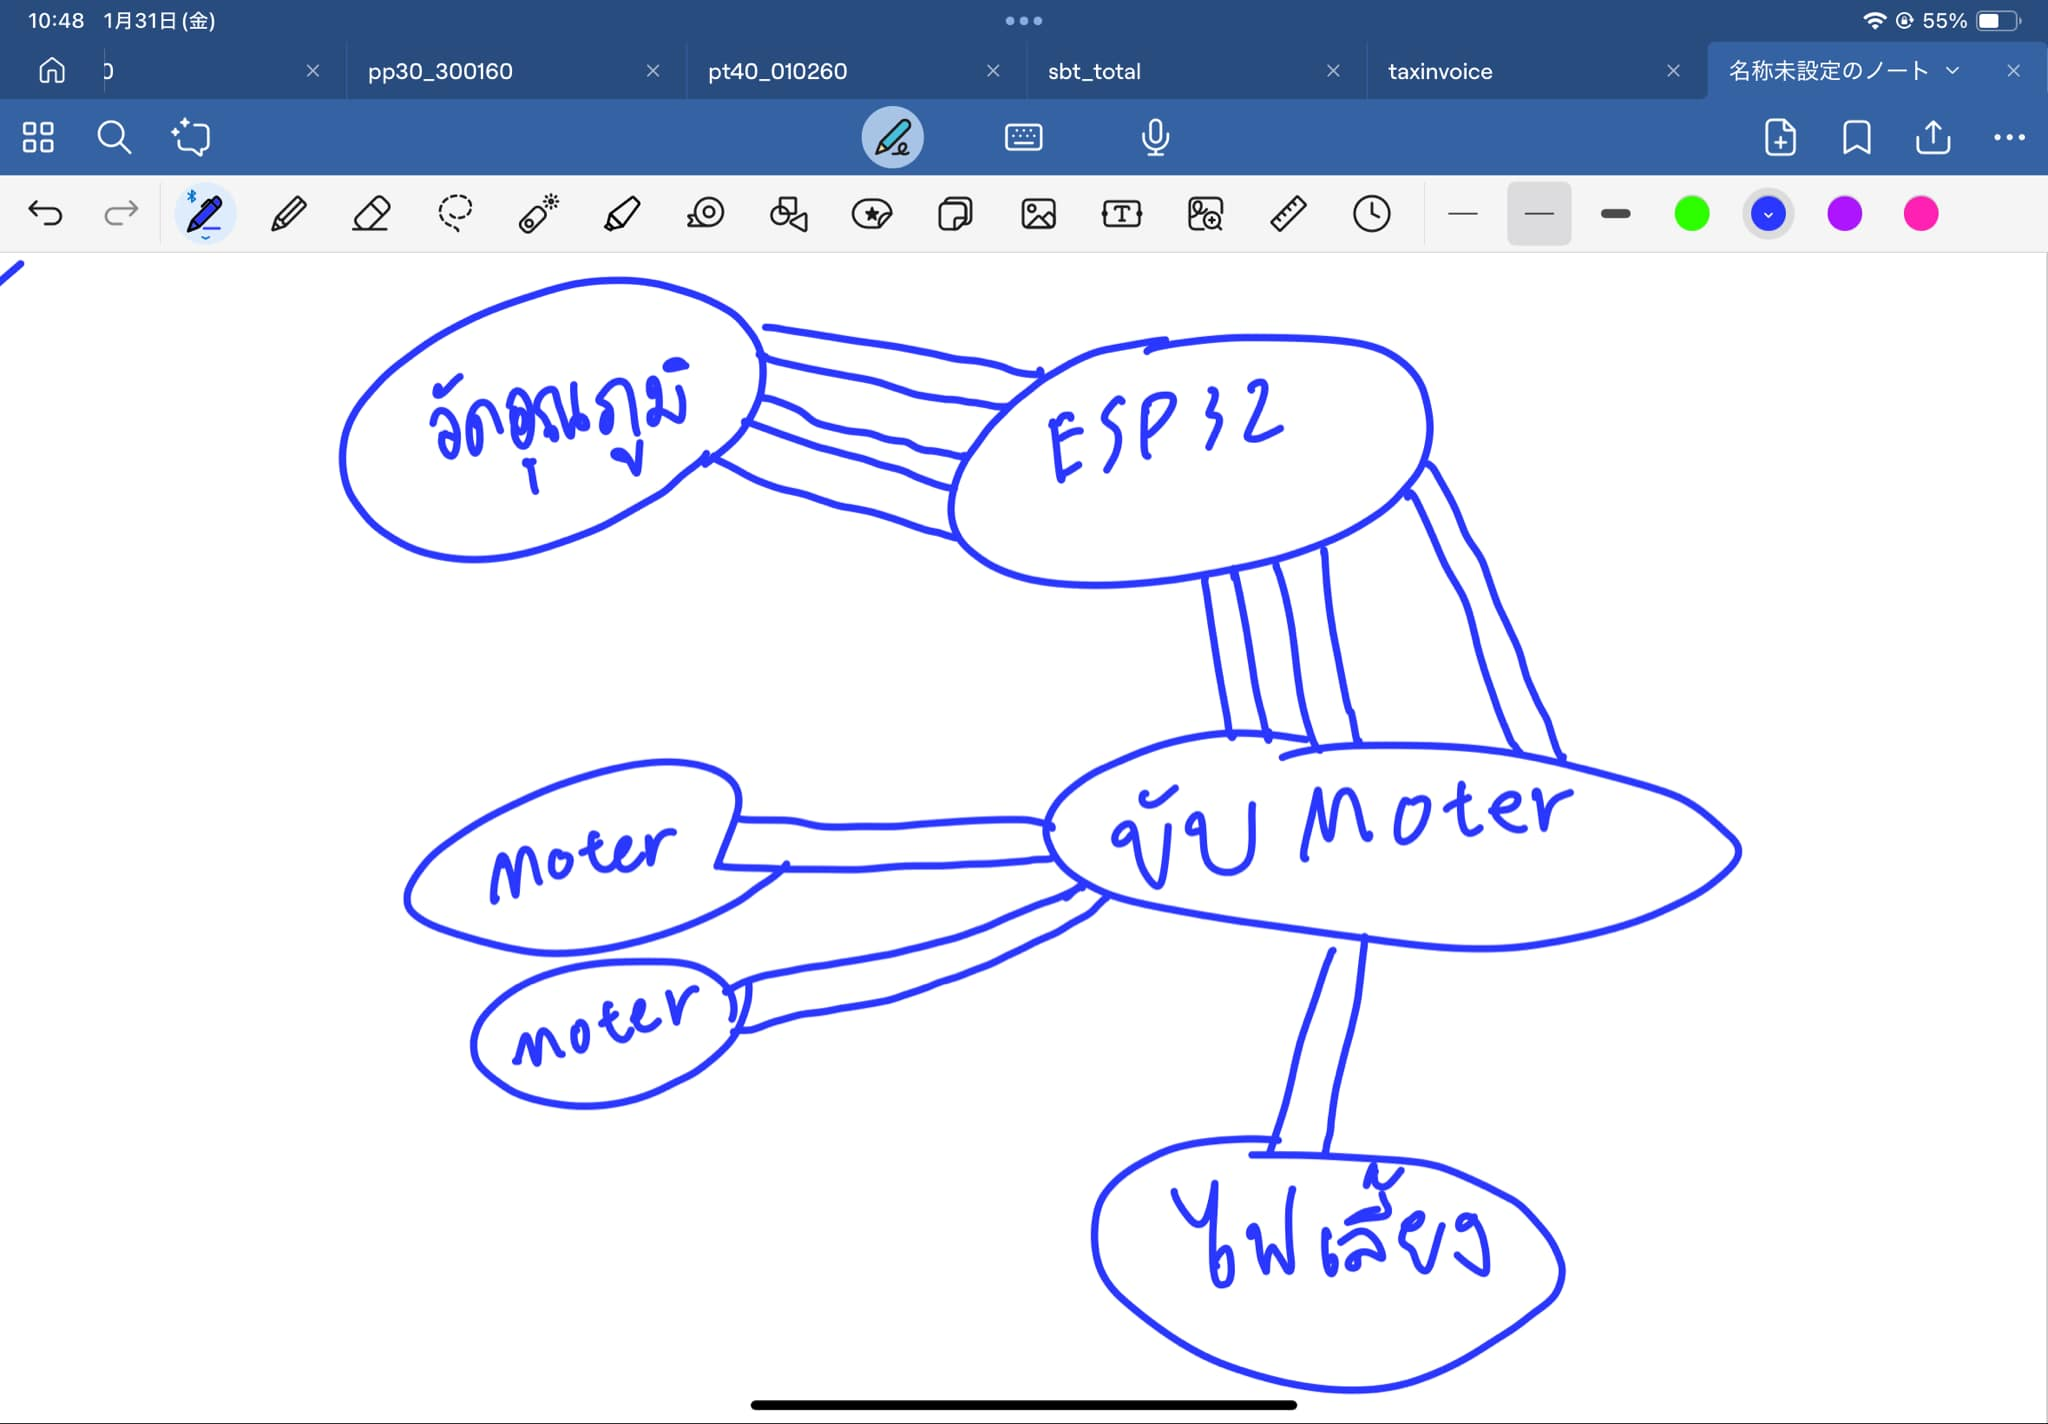 10:48 1月31日(金)
55%
pp30_300160
pt40_010260
sbt_total
taxinvoice
名称未設定のノート
วัดอุณภูมิ
ESP32
ขับ Moter
Moter
moter
ไฟเลี้ยง